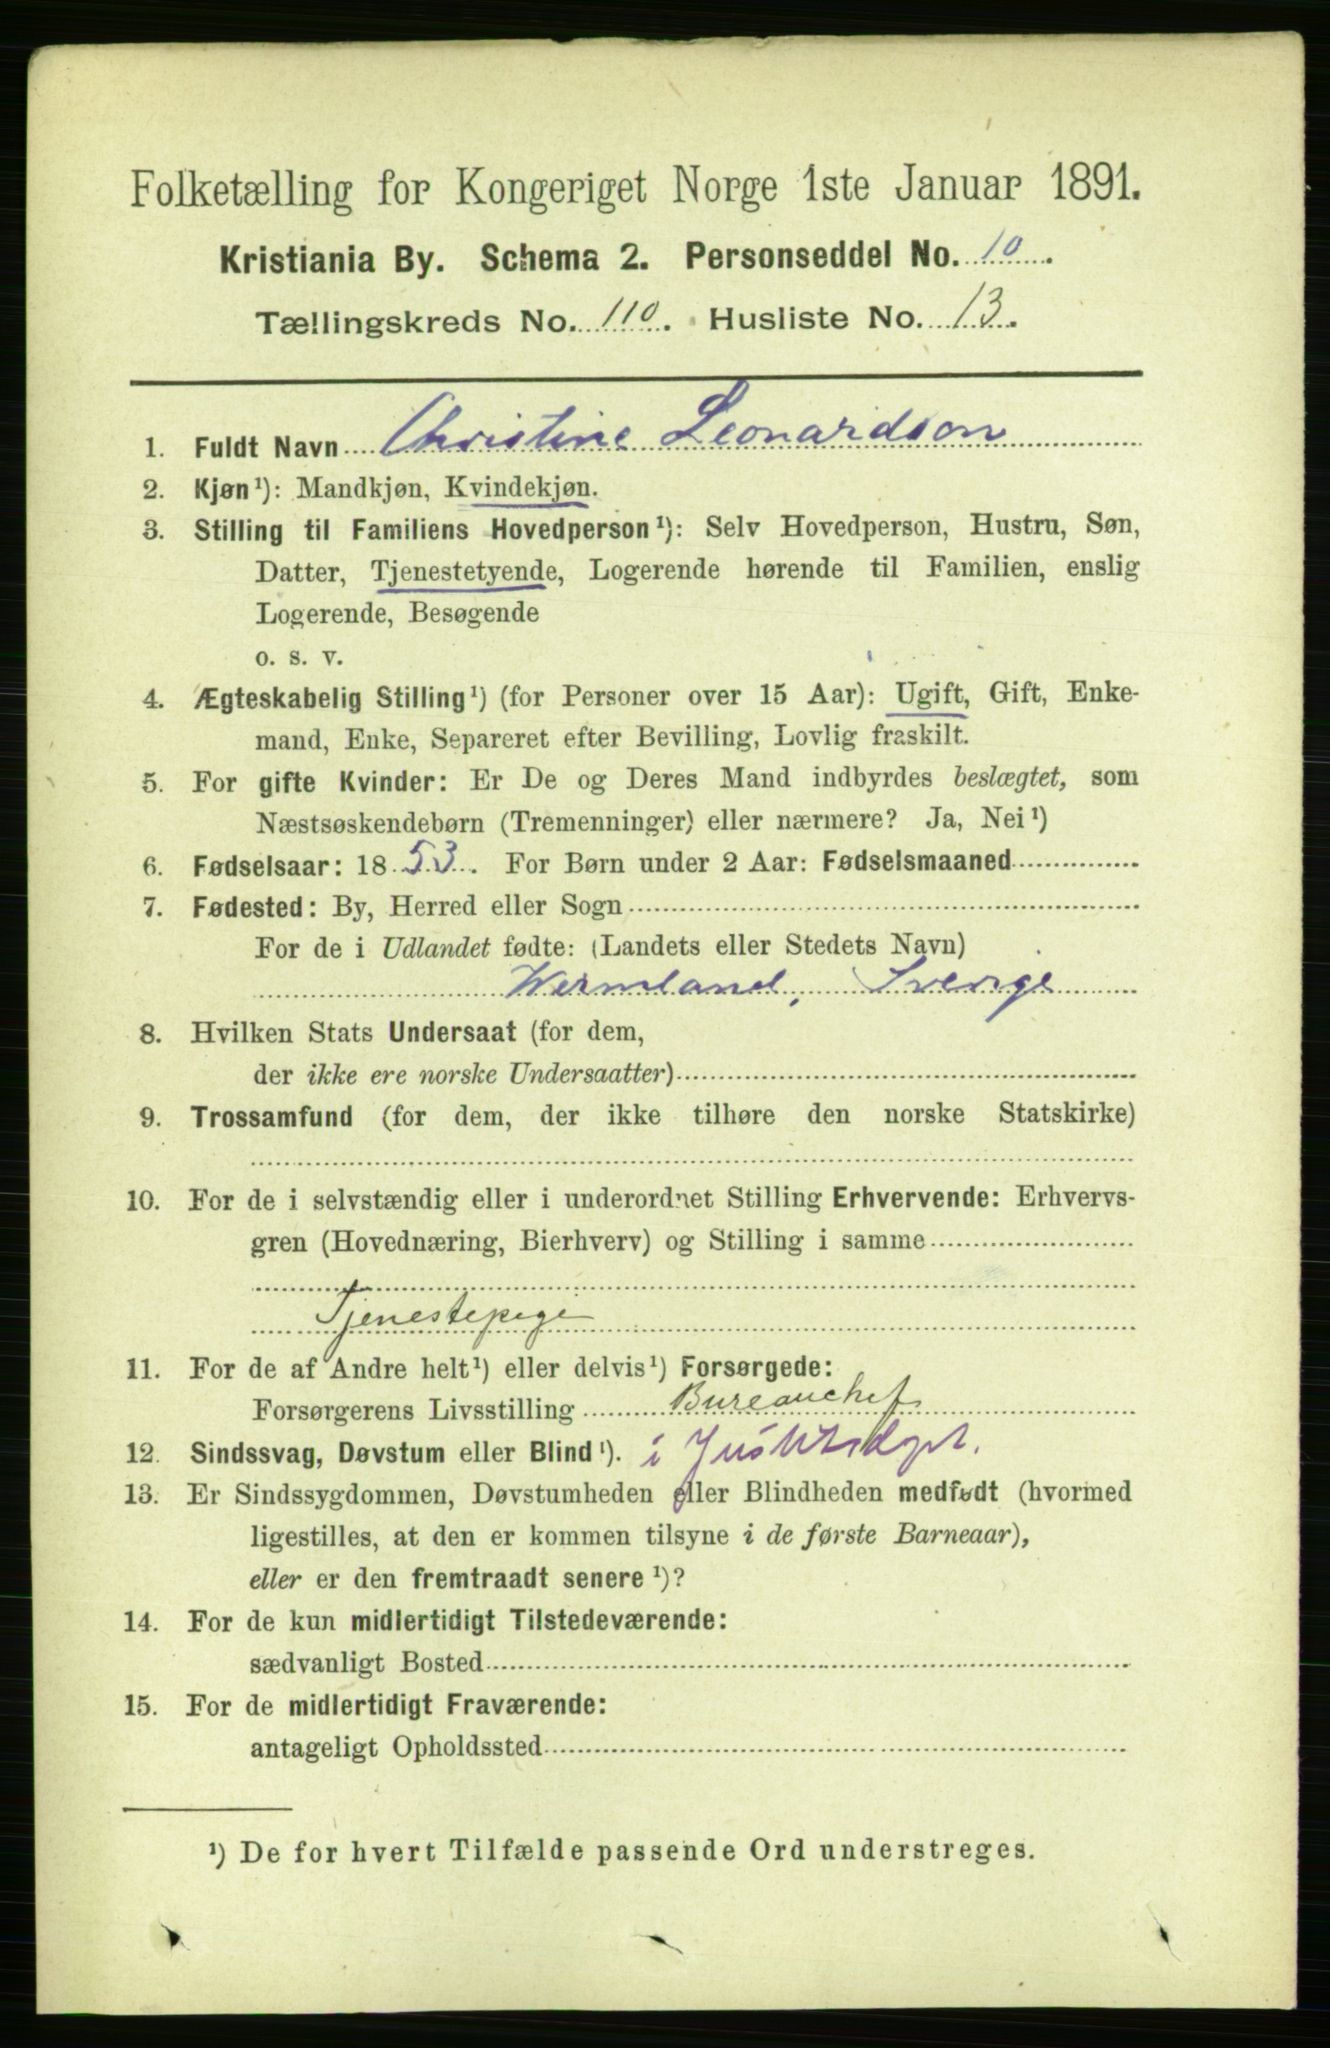 Folketælling for Kongeriget Norge 1ste Januar 1891.
Kristiania By. Schema 2. Personseddel No. 10.
Tællingskreds No. 110. Husliste No. 13.
1. Fuldt Navn Christine Leonardson
2. Kjøn¹): Mandkjøn, Kvindekjøn.
3. Stilling til Familiens Hovedperson¹): Selv Hovedperson, Hustru, Søn,
Datter, Tjenestetyende, Logerende hørende til Familien, enslig
Logerende, Besøgende
o. s. v.
4. Ægteskabelig Stilling¹) (for Personer over 15 Aar): Ugift, Gift, Enke-
mand, Enke, Separeret efter Bevilling, Lovlig fraskilt.
5. For gifte Kvinder: Er De og Deres Mand indbyrdes beslægtet, som
Næstsøskendebørn (Tremenninger) eller nærmere? Ja, Nei¹)
6. Fødselsaar: 1853. For Børn under 2 Aar: Fødselsmaaned
7. Fødested: By, Herred eller Sogn
For de i Udlandet fødte: (Landets eller Stedets Navn)
Wermland, Sverige
8. Hvilken Stats Undersaat (for dem,
der ikke ere norske Undersaatter)
9. Trossamfund (for dem, der ikke tilhøre den norske Statskirke)
10. For de i selvstændig eller i underordnet Stilling Erhvervende: Erhvervs-
gren (Hovednæring, Bierhverv) og Stilling i samme
Tjenestepige
11. For de af Andre helt¹) eller delvis¹) Forsørgede:
Forsørgerens Livsstilling Bureauchef
12. Sindssvag, Døvstum eller Blind¹). i Justitsdept.
13. Er Sindssygdommen, Døvstumheden eller Blindheden medfødt (hvormed
ligestilles, at den er kommen tilsyne i de første Barneaar),
eller er den fremtraadt senere¹)?
14. For de kun midlertidigt Tilstedeværende:
sædvanligt Bosted
15. For de midlertidigt Fraværende:
antageligt Opholdssted
¹) De for hvert Tilfælde passende Ord understreges.